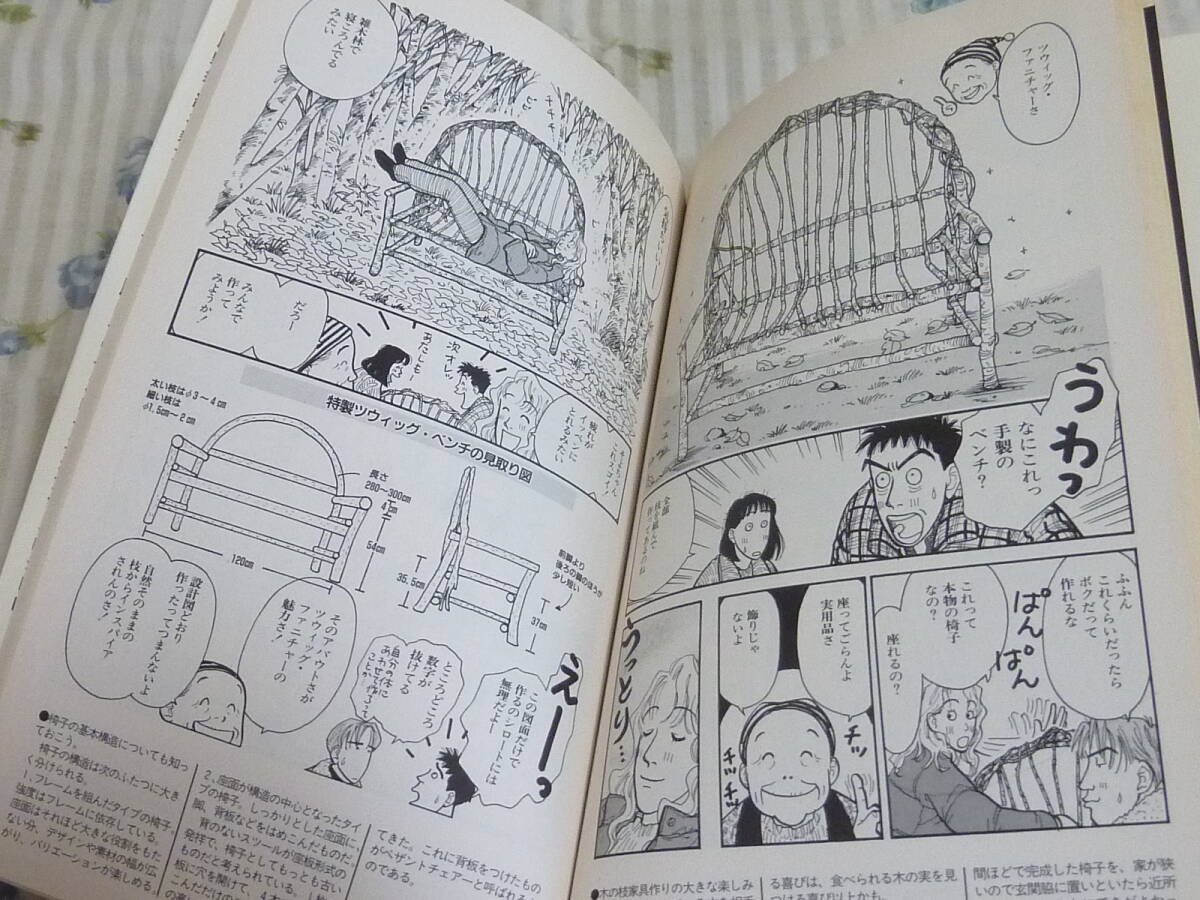 ツウィッグ・
ファニチャーさ
うわっ
なにこれっ
手製の
ベンチ?
全部
枝を組んで
作ってあるのね
ふふん
これくらいだったら
ボクだって
作れるな
ぱんぱん
これって
本物の椅子
なの?
座れるの?
座ってごらんよ
実用品さ
飾りじゃ
ないよ
チッ
チッチッ
うっとり…
●木の枝家具作りの大きな楽しみ
る喜びは、食べられる木の実を見
つける喜び以上かも。
間ほどで完成した椅子を、家が狭
いので玄関脇に置いといたら近所
雑木林で
寝ころんでる
みたい
キチキチ
疲れが
イッペンに
とれるみたい
次オレッ
あたしも!
だろー
みんなで
作って
みようか!
特製ツウィッグ・ベンチの見取り図
太い枝はφ3〜4㎝
細い枝は
φ1.5〜2㎝
長さ
280〜300㎝
4㎝
54㎝
120㎝
35.5㎝
37㎝
前脚より
後ろの脚のほうが
少し短い
えーっ
この図面だけで
作るのシロートには
無理だよー
ところどころ
数字が
抜けてる
自分の体に
あわせて作るって
ことか
そのアバウトさが
ツウィッグ・
ファニチャーの
魅力さ!
設計図どおり
作ったってつまんないよ
自然そのままの
枝からインスパイア
されんのさ!
●椅子の基本構造についても知っ
ておこう。
椅子の構造は次のふたつに大き
く分けられる。
1、フレームを組んだタイプの椅子。
強度はフレームに依存している。
座面はそれほど大きな役割をもた
ない分、デザインや素材の幅が広
がり、バリエーションが楽しめる。
2、座面が構造の中心となったタイ
プの椅子。しっかりとした座面に
脚、背板などをはめこんだものだ。
背のないスツールが座板形式の
発祥で、椅子としてもっとも古い
ものだと考えられている。
板に穴を開けて、4本
こんだだけの
てきた。これに背板をつけたもの
がペザントチェアーと呼ばれる
のである。